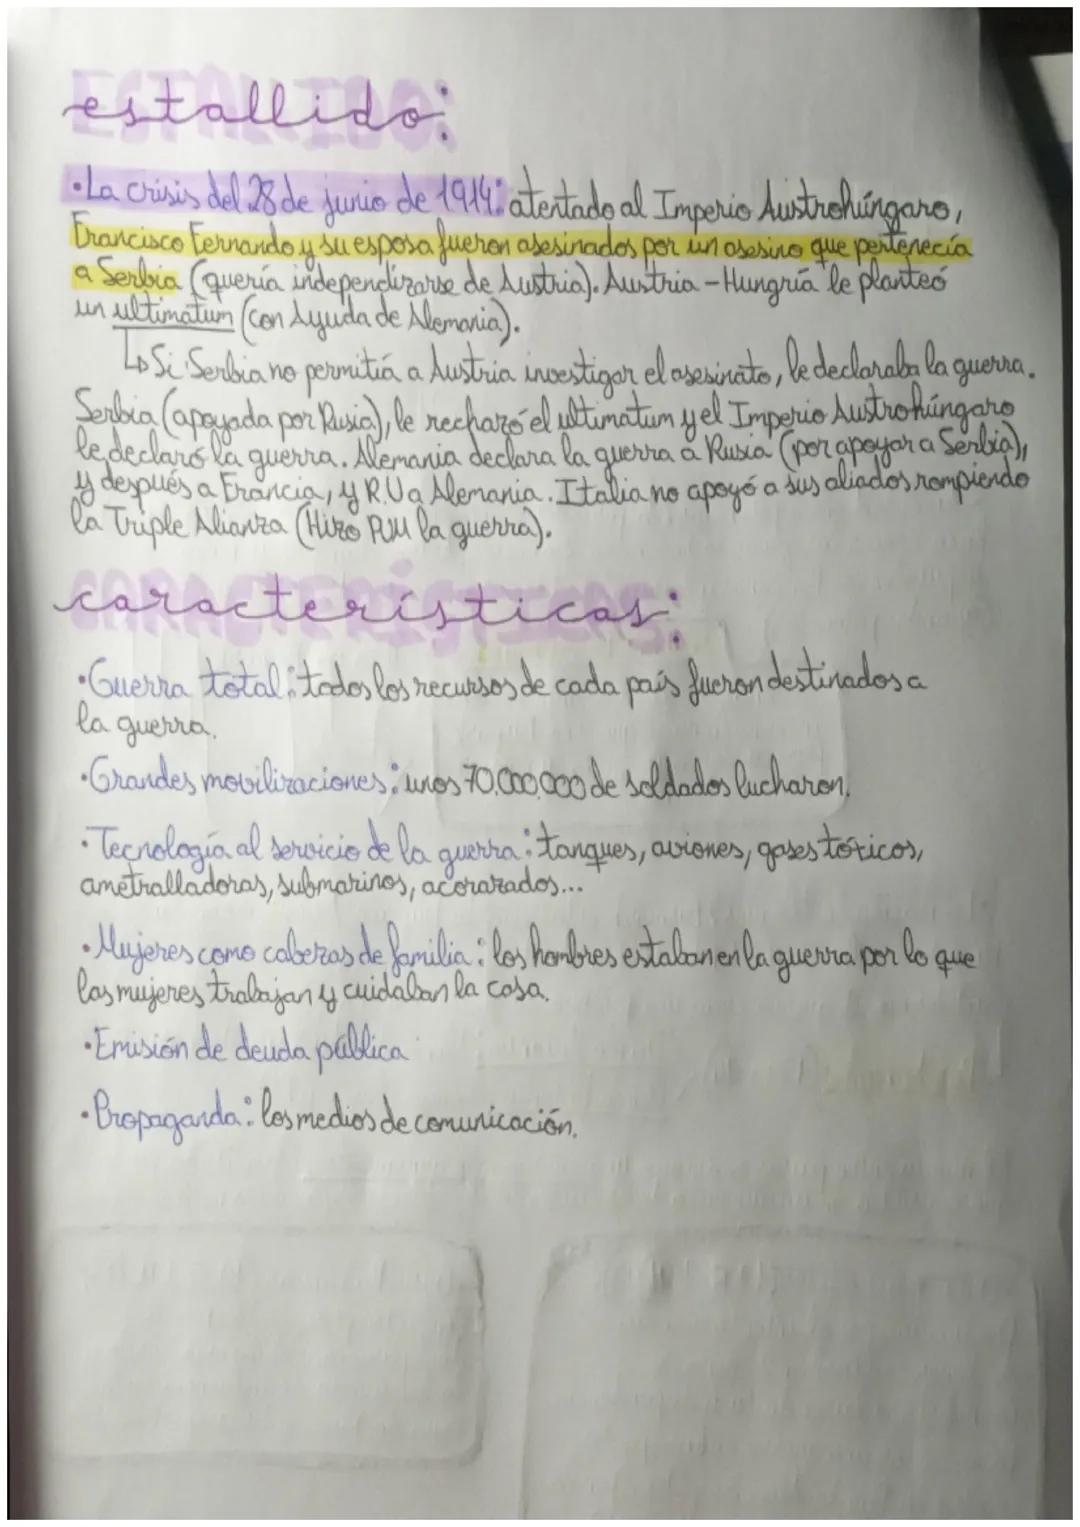 estallido:
•La crisis del 28 de junio de 1914: atentado al Imperio Austrohúngaro,
Francisco Fernando y su esposa fueron asesinados por un asesino que pertenecía
a Serbia (quería independizarse de Austria). Austria-Hungría le planteó
un ultimatum (con Ayuda de Alemania).
↳ Si Serbia no permitiá a Austria investigar el asesinato, le declaraba la guerra.
Serbia (apoyada por Rusia), le rechazó el ultimatum y el Imperio Austrohúngaro
le declaró la guerra. Alemania declara la guerra a Rusia (por apoyar a Serbia),
y después a Francia, y R.U a Alemania. Italia no apoyó a sus aliados rompiendo
la Triple Alianza (Hizo PUM la guerra).
características:
•Guerra total: todos los recursos de cada país fueron destinados a
la guerra.
•Grandes movilizaciones: unos 70.000.000 de soldados lucharon.
•Tecnología al servicio de la guerra: tanques, aviones, gases tóxicos,
ametralladoras, submarinos, acorazados...
•Mujeres como cabezas de familia: los hombres estaban en la guerra por lo que
las mujeres trabajan y cuidaban la casa.
•Emisión de deuda pública
•Propaganda: los medios de comunicación.